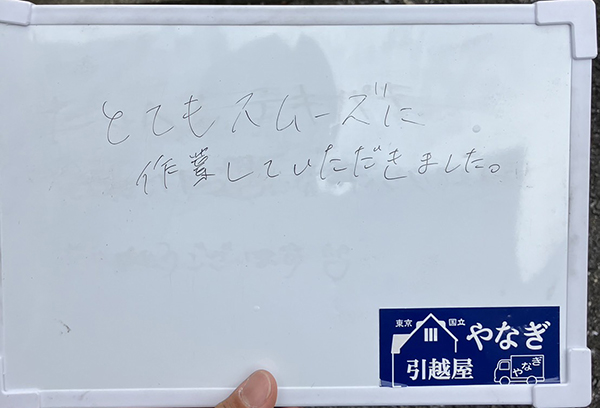 とてもスムーズに
作業していただきました。
東京 国立
やなぎ
引越屋
やなぎ